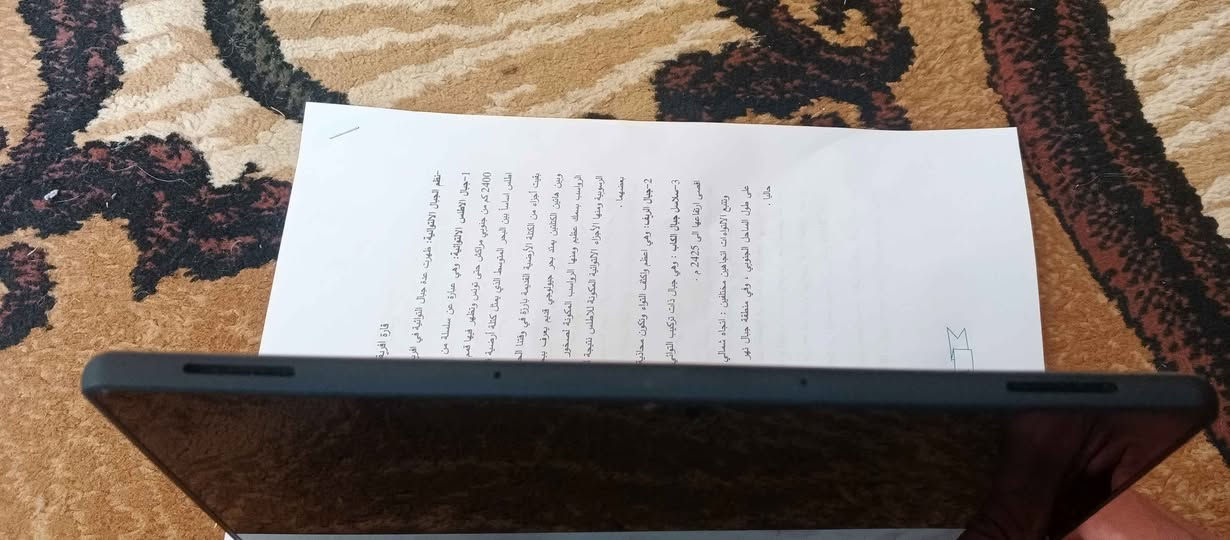 قارة افريق
-نظم الجبال الالتوائية: ظهرت عدة جبال التوائية في افري
1-جبال الاطلس الالتوائية: وهي عبارة عن سلسلة من
2400 كم من جنوبي مراكش حتى تونس وتظهر فيها قمم
اطلس اساساً بين البحر المتوسط الذي يمثل كتلة أرضية
بقيت أجزاء من الكتلة الأرضية القديمة بارزة في وقتنا الح
وبين هاتين الكتلتين يمتد بحر جيولوجي قديم يعرف ببـ
الرواسب بسمك عظيم ومنها الرواسب المكونة لصخور
الرسوبية ومنها الأجزاء الالتوائية المكونة للاطلس نتيجة
بعضهما .
2-جبال الريف: وهي اعظم واكثف التواء وتكون محاذية
3-سلاسل جبال الكاب : وهي جبال ذات تركيب التوائي
أقصى ارتفاعها الى 2425 م .
وتتبع الالتواءات اتجاهين مختلفين : اتجاه شمالي
على طول الساحل الجنوبي ، وفي منطقة جبال نهر
حاليا .